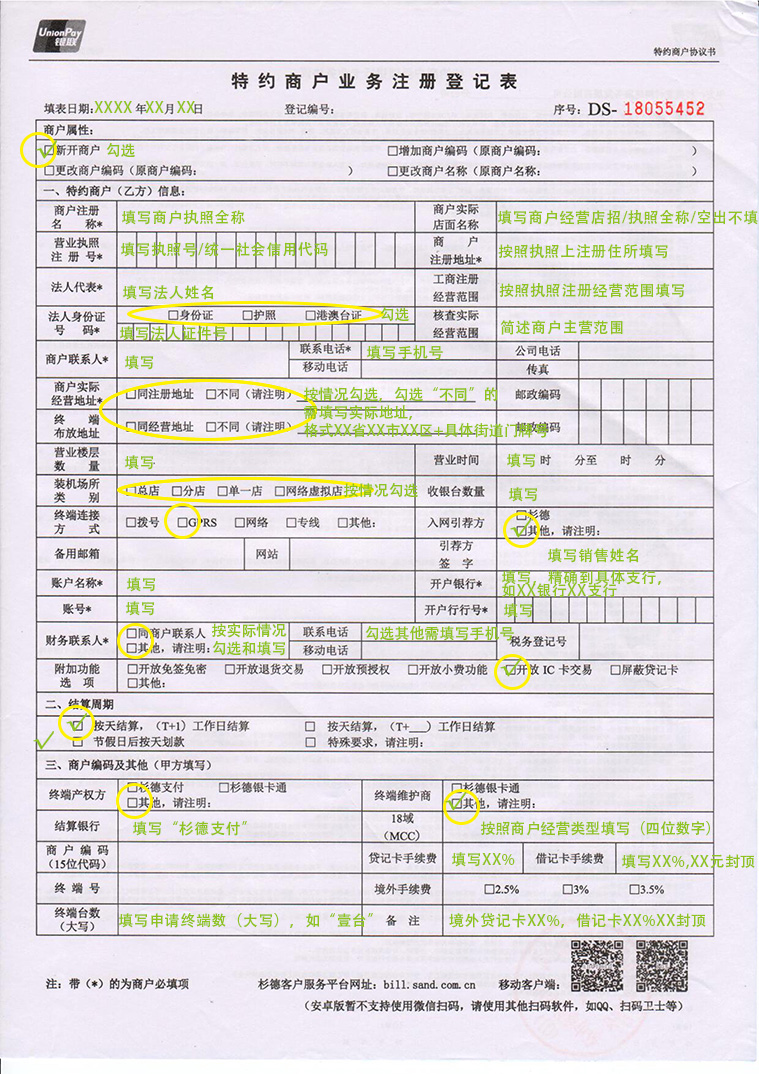 UnionPay
银联
特约商户协议书
特约商户业务注册登记表
填表日期:XXXX年XX月XX日 登记编号: 序号: DS- 18055452
商户属性:
☑新开商户 勾选 □增加商户编码（原商户编码: ）
□更改商户编码（原商户编码: ） □更改商户名称（原商户名称: ）
一、特约商户（乙方）信息:
商户注册名 称* 填写商户执照全称 商户实际店面名称 填写商户经营店招/执照全称/空出不填
营业执照注 册 号* 填写执照号/统一社会信用代码 商 户注册地址* 按照执照上注册住所填写
法人代表* 填写法人姓名 工商注册经营范围 按照执照注册经营范围填写
法人身份证号 码* □身份证 □护照 □港澳台证 勾选 核查实际经营范围 简述商户主营范围
填写法人证件号
商户联系人* 填写 联系电话* 填写手机号 公司电话
移动电话 传真
商户实际经营地址* □同注册地址 □不同（请注明） 按情况勾选，勾选“不同”的 邮政编码
需填写实际地址，
终 端布放地址 □同经营地址 □不同（请注明） 格式XX省XX市XX区+具体街道门牌号 邮政编码
营业楼层数 量 填写 营业时间 填写 时 分至 时 分
装机场所类 别 □总店 □分店 □单一店 □网络虚拟店 按情况勾选 收银台数量 填写
终端连接方 式 □拨号 □GPRS □网络 □专线 □其他: 入网引荐方 □杉德
☑其他，请注明:
备用邮箱 网站 引荐方签 字 填写销售姓名
账户名称* 填写 开户银行* 填写，精确到具体支行，
如XX银行XX支行
账号* 填写 开户行行号* 填写
财务联系人* □同商户联系人 按实际情况 联系电话 勾选其他需填写手机号 税务登记号
□其他，请注明: 勾选和填写 移动电话
附加功能选 项 □开放免签免密 □开放退货交易 □开放预授权 □开放小费功能 ☑开放 IC 卡交易 □屏蔽贷记卡
□其他:
二、结算周期
☑ 按天结算，（T+1）工作日结算 □ 按天结算，（T+___）工作日结算
□ 节假日后按天划款 □ 特殊要求，请注明:
三、商户编码及其他（甲方填写）
终端产权方 □杉德支付 □杉德银卡通 终端维护商 □杉德银卡通
□其他，请注明: ☑其他，请注明:
结算银行 填写“杉德支付” 18域（MCC） 按照商户经营类型填写（四位数字）
商 户 编 码（15位代码） 贷记卡手续费 填写XX% 借记卡手续费 填写XX%,XX元封顶
终 端 号 境外手续费 □2.5% □3% □3.5%
终端台数（大写） 填写申请终端数（大写），如“壹台” 备 注 境外贷记卡XX%，借记卡XX%XX封顶
注: 带（*）的为商户必填项 杉德客户服务平台网址: bill.sand.com.cn 移动客户端:
（安卓版暂不支持使用微信扫码，请使用其他扫码软件，如QQ、扫码卫士等）